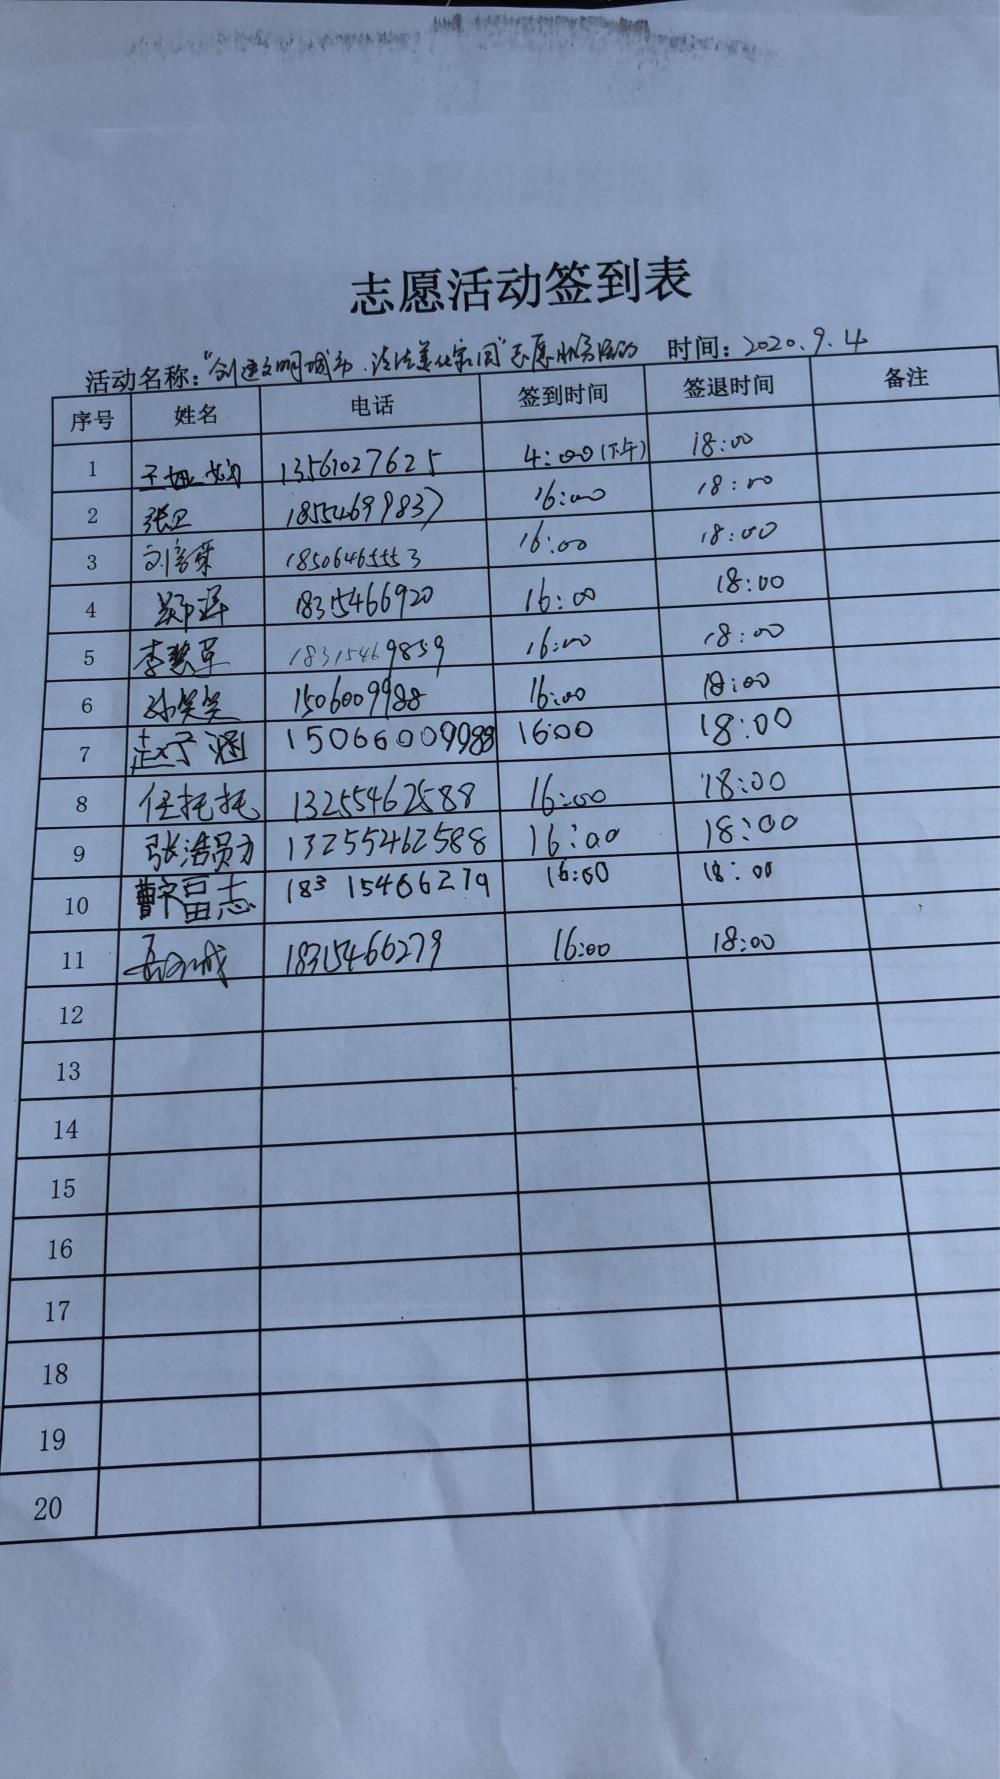 志愿活动签到表
活动名称："创建文明城市、清洁美化家园"志愿服务活动 时间：2020.9.4
序号 姓名 电话 签到时间 签退时间 备注
1 13561027625 4:00(下午) 18:00
2 张卫 18554699837 16:00 18:00
3 刘倍荣 18506465553 16:00 18:00
4 郑泽 18315466920 16:00 18:00
5 李慧军 18315469859 16:00 18:00
6 孙笑笑 1506009988 16:00 18:00
7 赵子涵 15066009988 1600 18:00
8 任托托 13255462588 16:00 18:00
9 张浩 13255462588 16:00 18:00
10 志 18315466279 16:00 18:00
11 18315466279 16:00 18:00
12
13
14
15
16
17
18
19
20